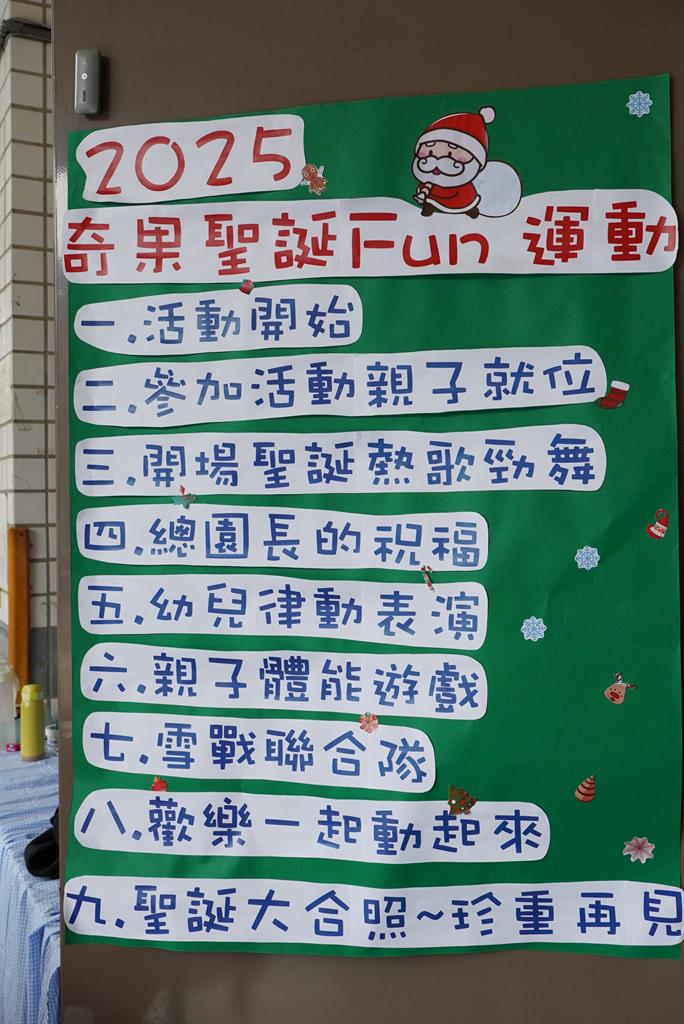 2025
奇果聖誕Fun 運動
一.活動開始
二.參加活動親子就位
三.開場聖誕熱歌勁舞
四.總園長的祝福
五.幼兒律動表演
六.親子體能遊戲
七.雪戰聯合隊
八.歡樂一起動起來
九.聖誕大合照~珍重再見